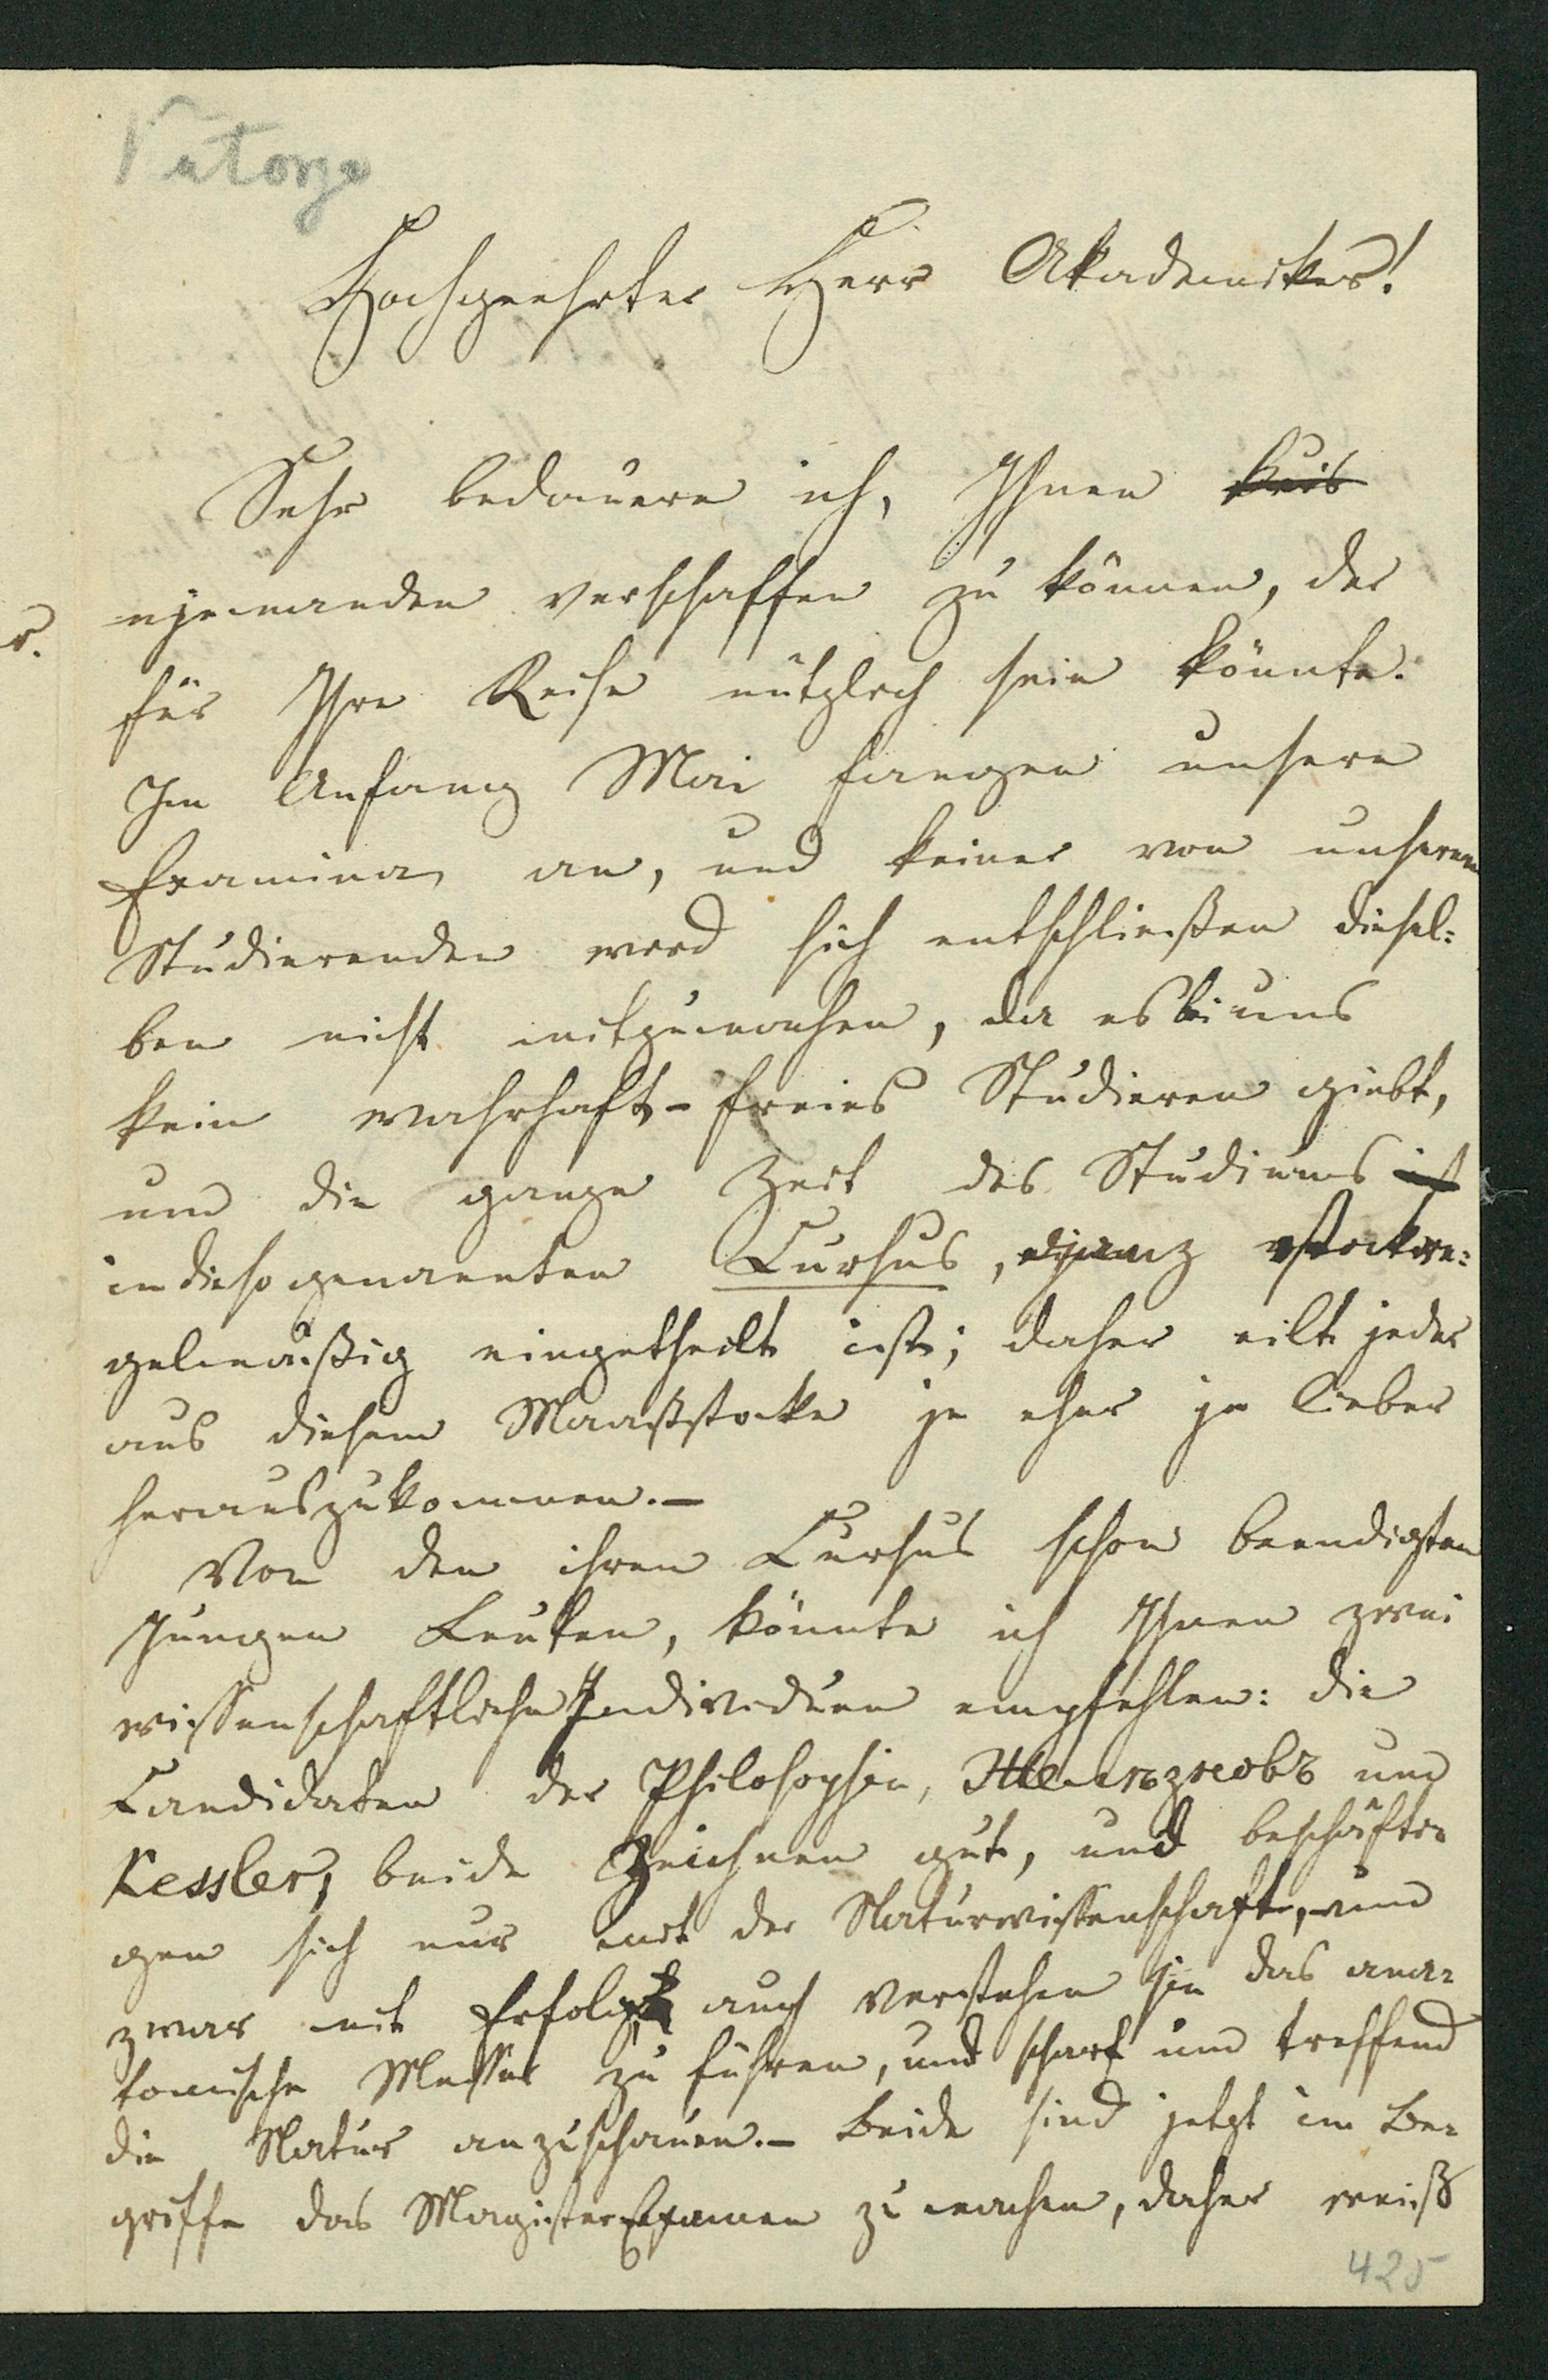 Kutorga
Hochgeehrter Herr Akademiker!
Sehr bedauere ich, Ihnen
njemanden verschaffen zu können, der
für Ihre Reise nützlich sein könnte.
Im Anfang Mai fangen unsere
Examina an, und keiner von unseren
Studierenden wird sich entschließen diesel-
ben nicht mitzumachen, da es bei uns
kein wahrhaft-freies Studieren giebt,
und die ganze Zeit des Studiums ist
in die sogenannten Cursus, ganz stockre-
gelmäßig eingetheilt ist; daher eilt jeder
aus diesem Maaßstocke je eher je lieber
herauszukommen.—
Von den ihren Cursus schon beendigten
jungen Leuten, könnte ich Ihnen zwei
wissenschaftliche Individuen empfehlen: die
Candidaten der Philosophie, Железновъ und
Kessler, beide Zeichnen gut, und beschäfti-
gen sich nur mit der Naturwissenschaft, und
zwar mit Erfolg; auch verstehen sie das ana-
tomische Messer zu führen, und scharf und treffend
die Natur anzuschauen.— Beide sind jetzt im Be-
griffe das Magister Examen zu machen, daher weiß
425
r.